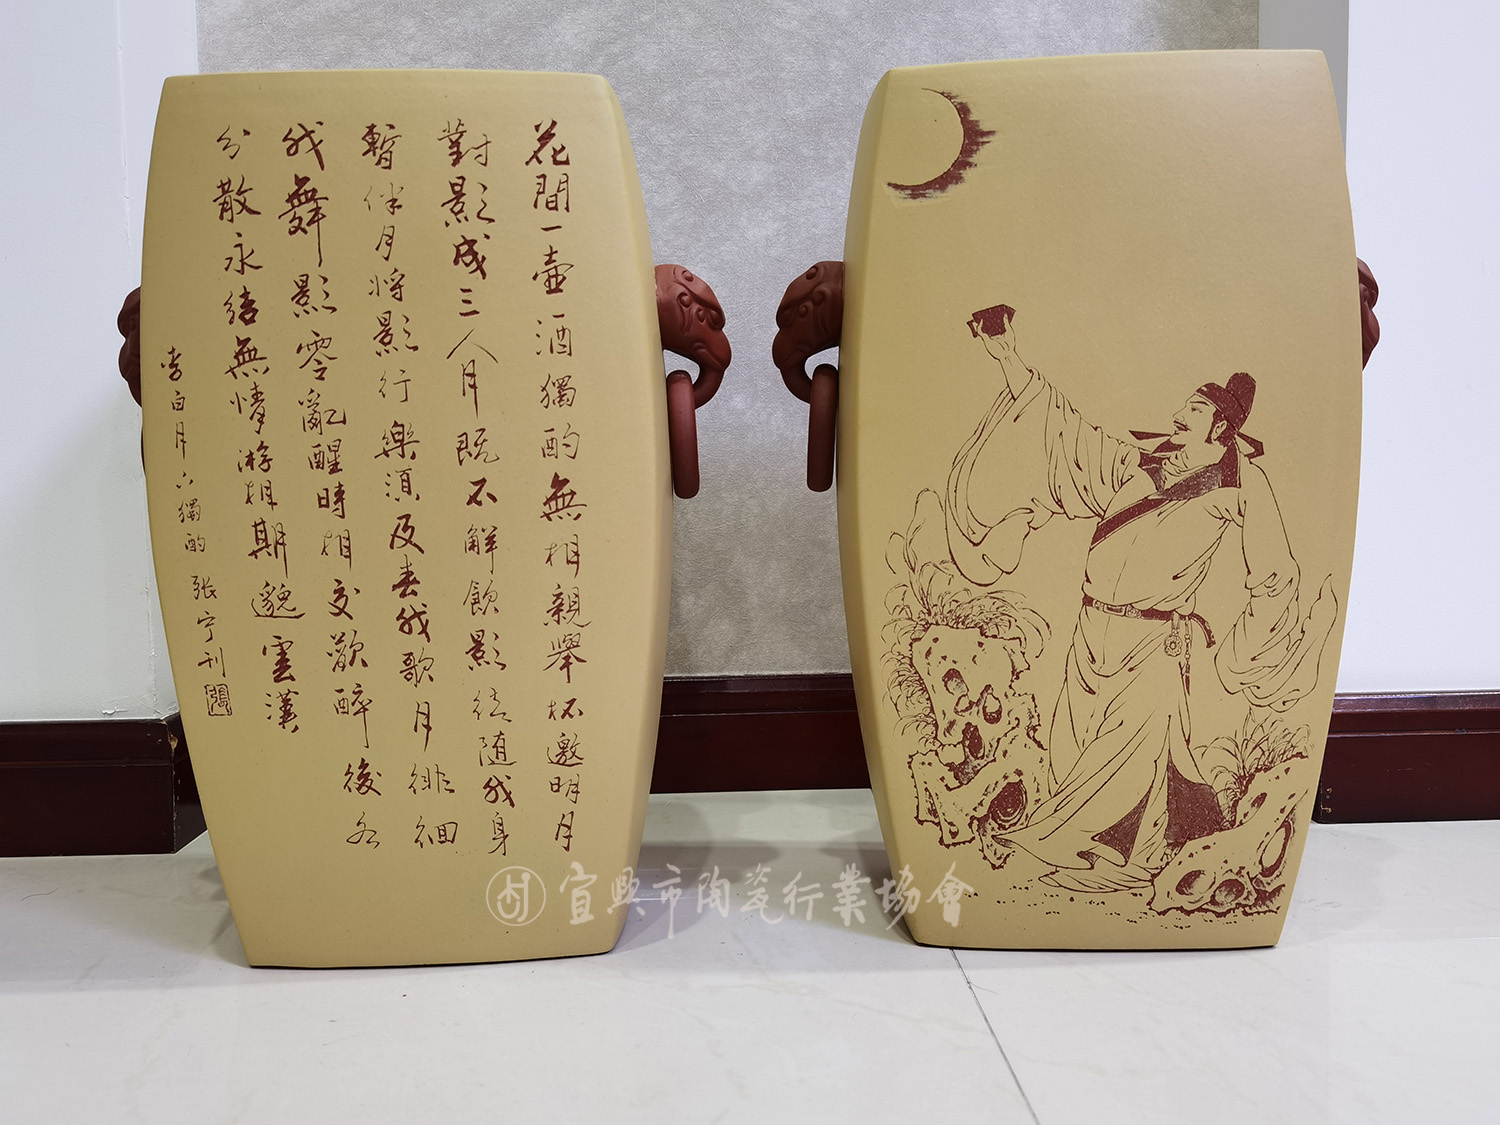 花間一壺酒獨酌無相親舉杯邀明月
對影成三人月既不解飲影徒随我身
暫伴月将影行樂須及春我歌月徘徊
我舞影零亂醒時相交歡醉後各
分散永结無情游相期邈雲漢
李白月下獨酌 张宁刊
宜興市陶瓷行業協會